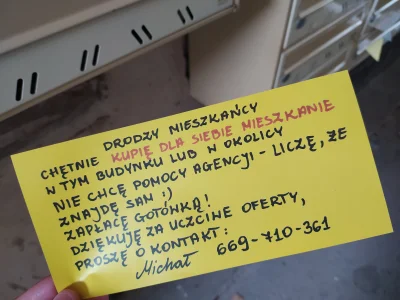 DRODZY MIESZKAŃCY
CHĘTNIE KUPIĘ DLA SIEBIE MIESZKANIE
W TYM BUDYNKU LUB W OKOLICY
NIE CHCĘ POMOCY AGENCJI - LICZĘ, ŻE
ZNAJDĘ SAM :)
ZAPŁACĘ GOTÓWKĄ!
DZIĘKUJĘ ZA UCZCIWE OFERTY,
PROSZĘ O KONTAKT:
Michał 669-710-361